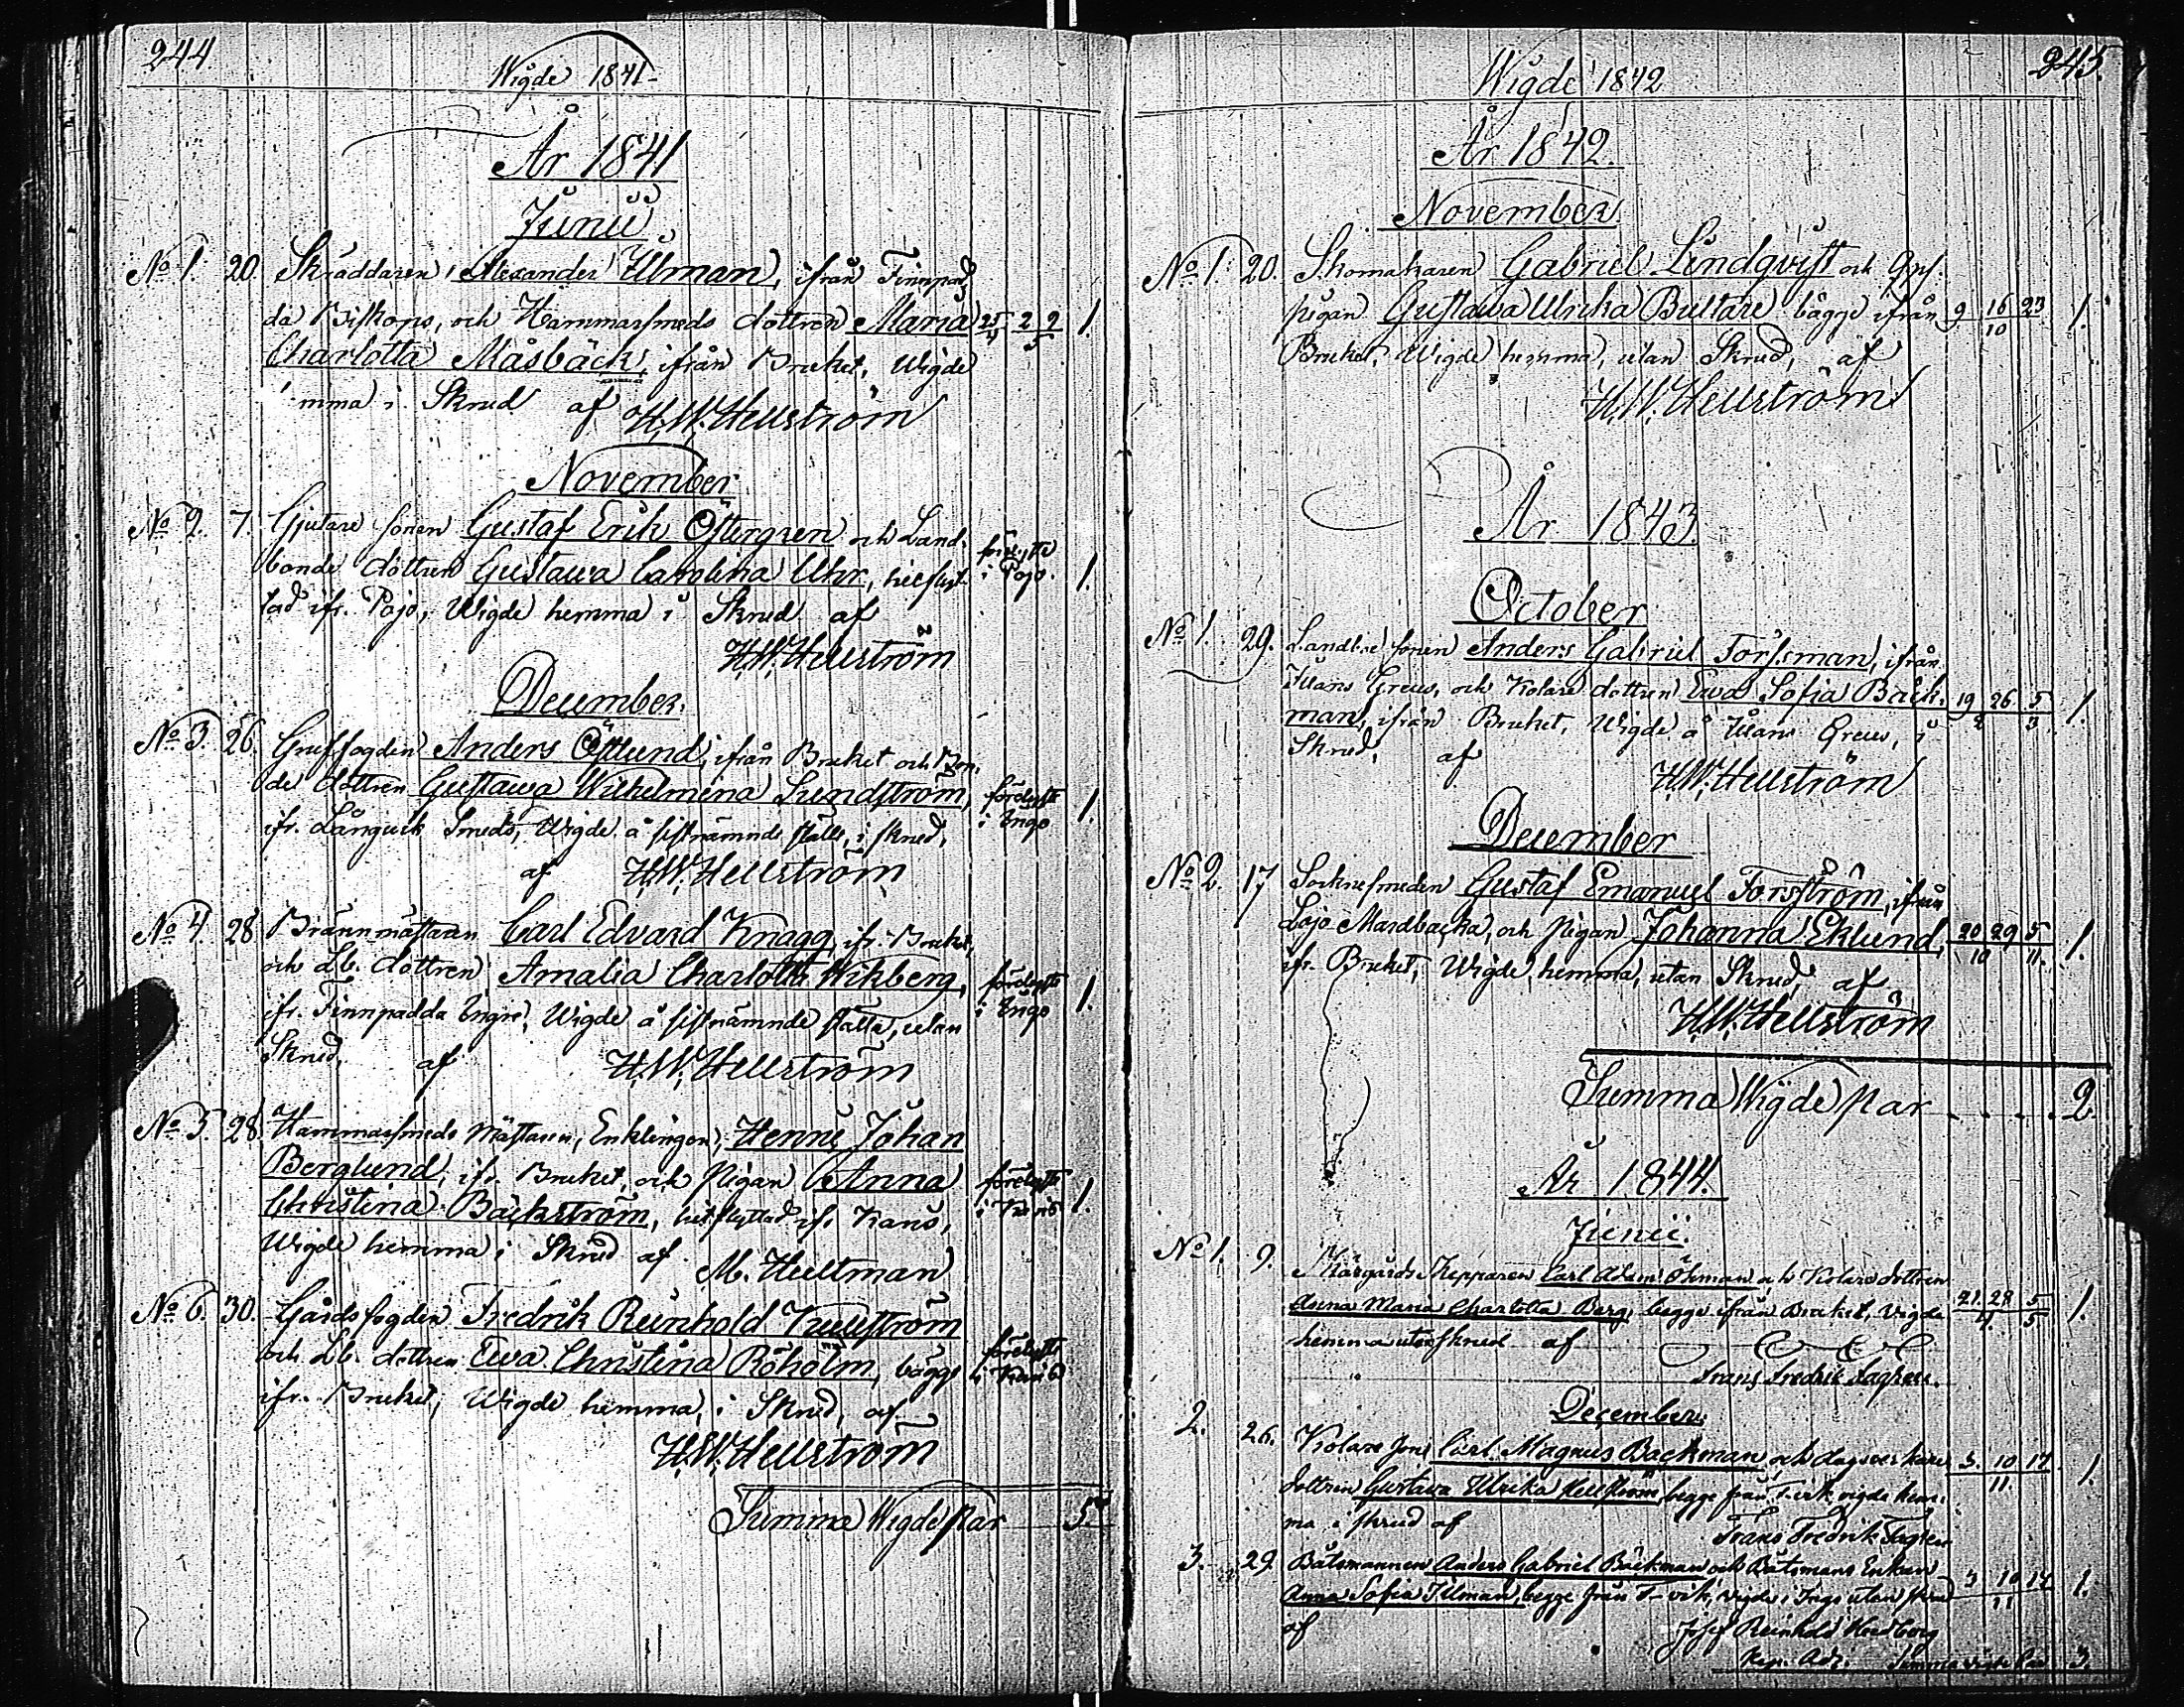 244
Wigde 1841
År 1841
Junii
No 1. 20. Skräddaren Alexander Illman, ifrån Finnpad
da Biskops, och Hammarsmeds dottren Maria 25/4 2 9/5 1.
Charlotta Måsbäck, ifrån Bruket, Wigde
mma i Skrud af H.W. Hellström
November
No 2. 7. Gjutare sonen Gustaf Erik Östergren och Land-
bonde dottren Gustawa Carolina Uhr, hitflyt- förelyste i Pojo. 1.
tad ifr. Pojo, Wigde hemma i Skrud af
H.W. Hellström
December.
No 3. 26. Gruffogden Anders Östlund, ifrån Bruket och Bon-
de dottren Gustawa Wilhelmina Lundström, förelyste i Ingo 1.
ifr. Långvik Smeds, Wigde å sistnämnde ställe, i skrud,
af H.W. Hellström
No 4. 28 Brännmästaren Carl Edvard Knagg ifr. Bruket,
och Lb. dottren Amalia Charlotta Wikberg, förelyste i Ingo 1.
ifr. Finnpadda Engis, Wigde å sistnämnde ställe, utan
Skrud, af H.W. Hellström
No 5. 28. Hammarsmeds Mästaren, Enklingen, Henric Johan
Berglund, ifr. Bruket, och Pigan Anna förelyste
Christina Bäckström, hitflyttad ifr. Karis, i Karis 1.
Wigde hemma i Skrud af M. Hultman
No 6. 30. Gårdsfogden Fredrik Reinhold
och Lb. dottren Ewa Christina Röholm, bägge förelyste i Karis
ifr. Bruket, Wigde hemma, i Skrud, af
H.W. Hellström
Summa Wigde Par 5.
245.
Wigde 1842
År 1842.
November
No 1. 20. Skomakaren Gabriel Lindqvist och
pigan Gustawa Ulrika Bultare bägge ifrån 9 16 23/10 1.
Bruket, Wigde hemma, utan Skrud, af
H.W. Hellström
År 1843.
October
No 1. 29. Landbo sonen Anders Gabriel Forssman, ifrån
Grews, och Kolare dottren Ewa Sofia Bäck- 19 26 5 1.
man, ifrån Bruket, Wigde å Grews, i
Skrud, af
H.W. Hellström
December
No 2. 17 Socknesmeden Gustaf Emanuel Forsström, ifrån
Lojo Mardbacka, och Pigan Johanna Eklund, 20 29 5 1.
ifr. Bruket, Wigde hemma, utan Skrud, af 10 11.
H.W. Hellström
Summa Wigde Par . . . . 2.
År 1844.
Junii.
No 1. 9. Skärgårds Skepparen Carl Adam Öhman och Kolare dottren
Anna Maria Charlotta Berg, begge ifrån Bruket, Vigde 21 28/4 5/5 1.
hemma utan skrud af
Frans Fredrik Fagren.
December.
2. 26. Kolare son Carl Magnus Backman och dagsverkare 3. 10 17 1.
dottren Gustava Ulrika Hellström, begge från F-vik vigde hem- 11
ma i skrud af Frans Fredrik Fagren
3. 29 Båtsmannen Anders Gabriel Bäckman och Båtsmans Enkan
Anna Sofia Illman, begge från F-vik, vigde i Ingo utan skrud 3 10 17/11 1.
af Josef Reinhold Hedberg
Kap. Adj. Summa vigde Par 3.